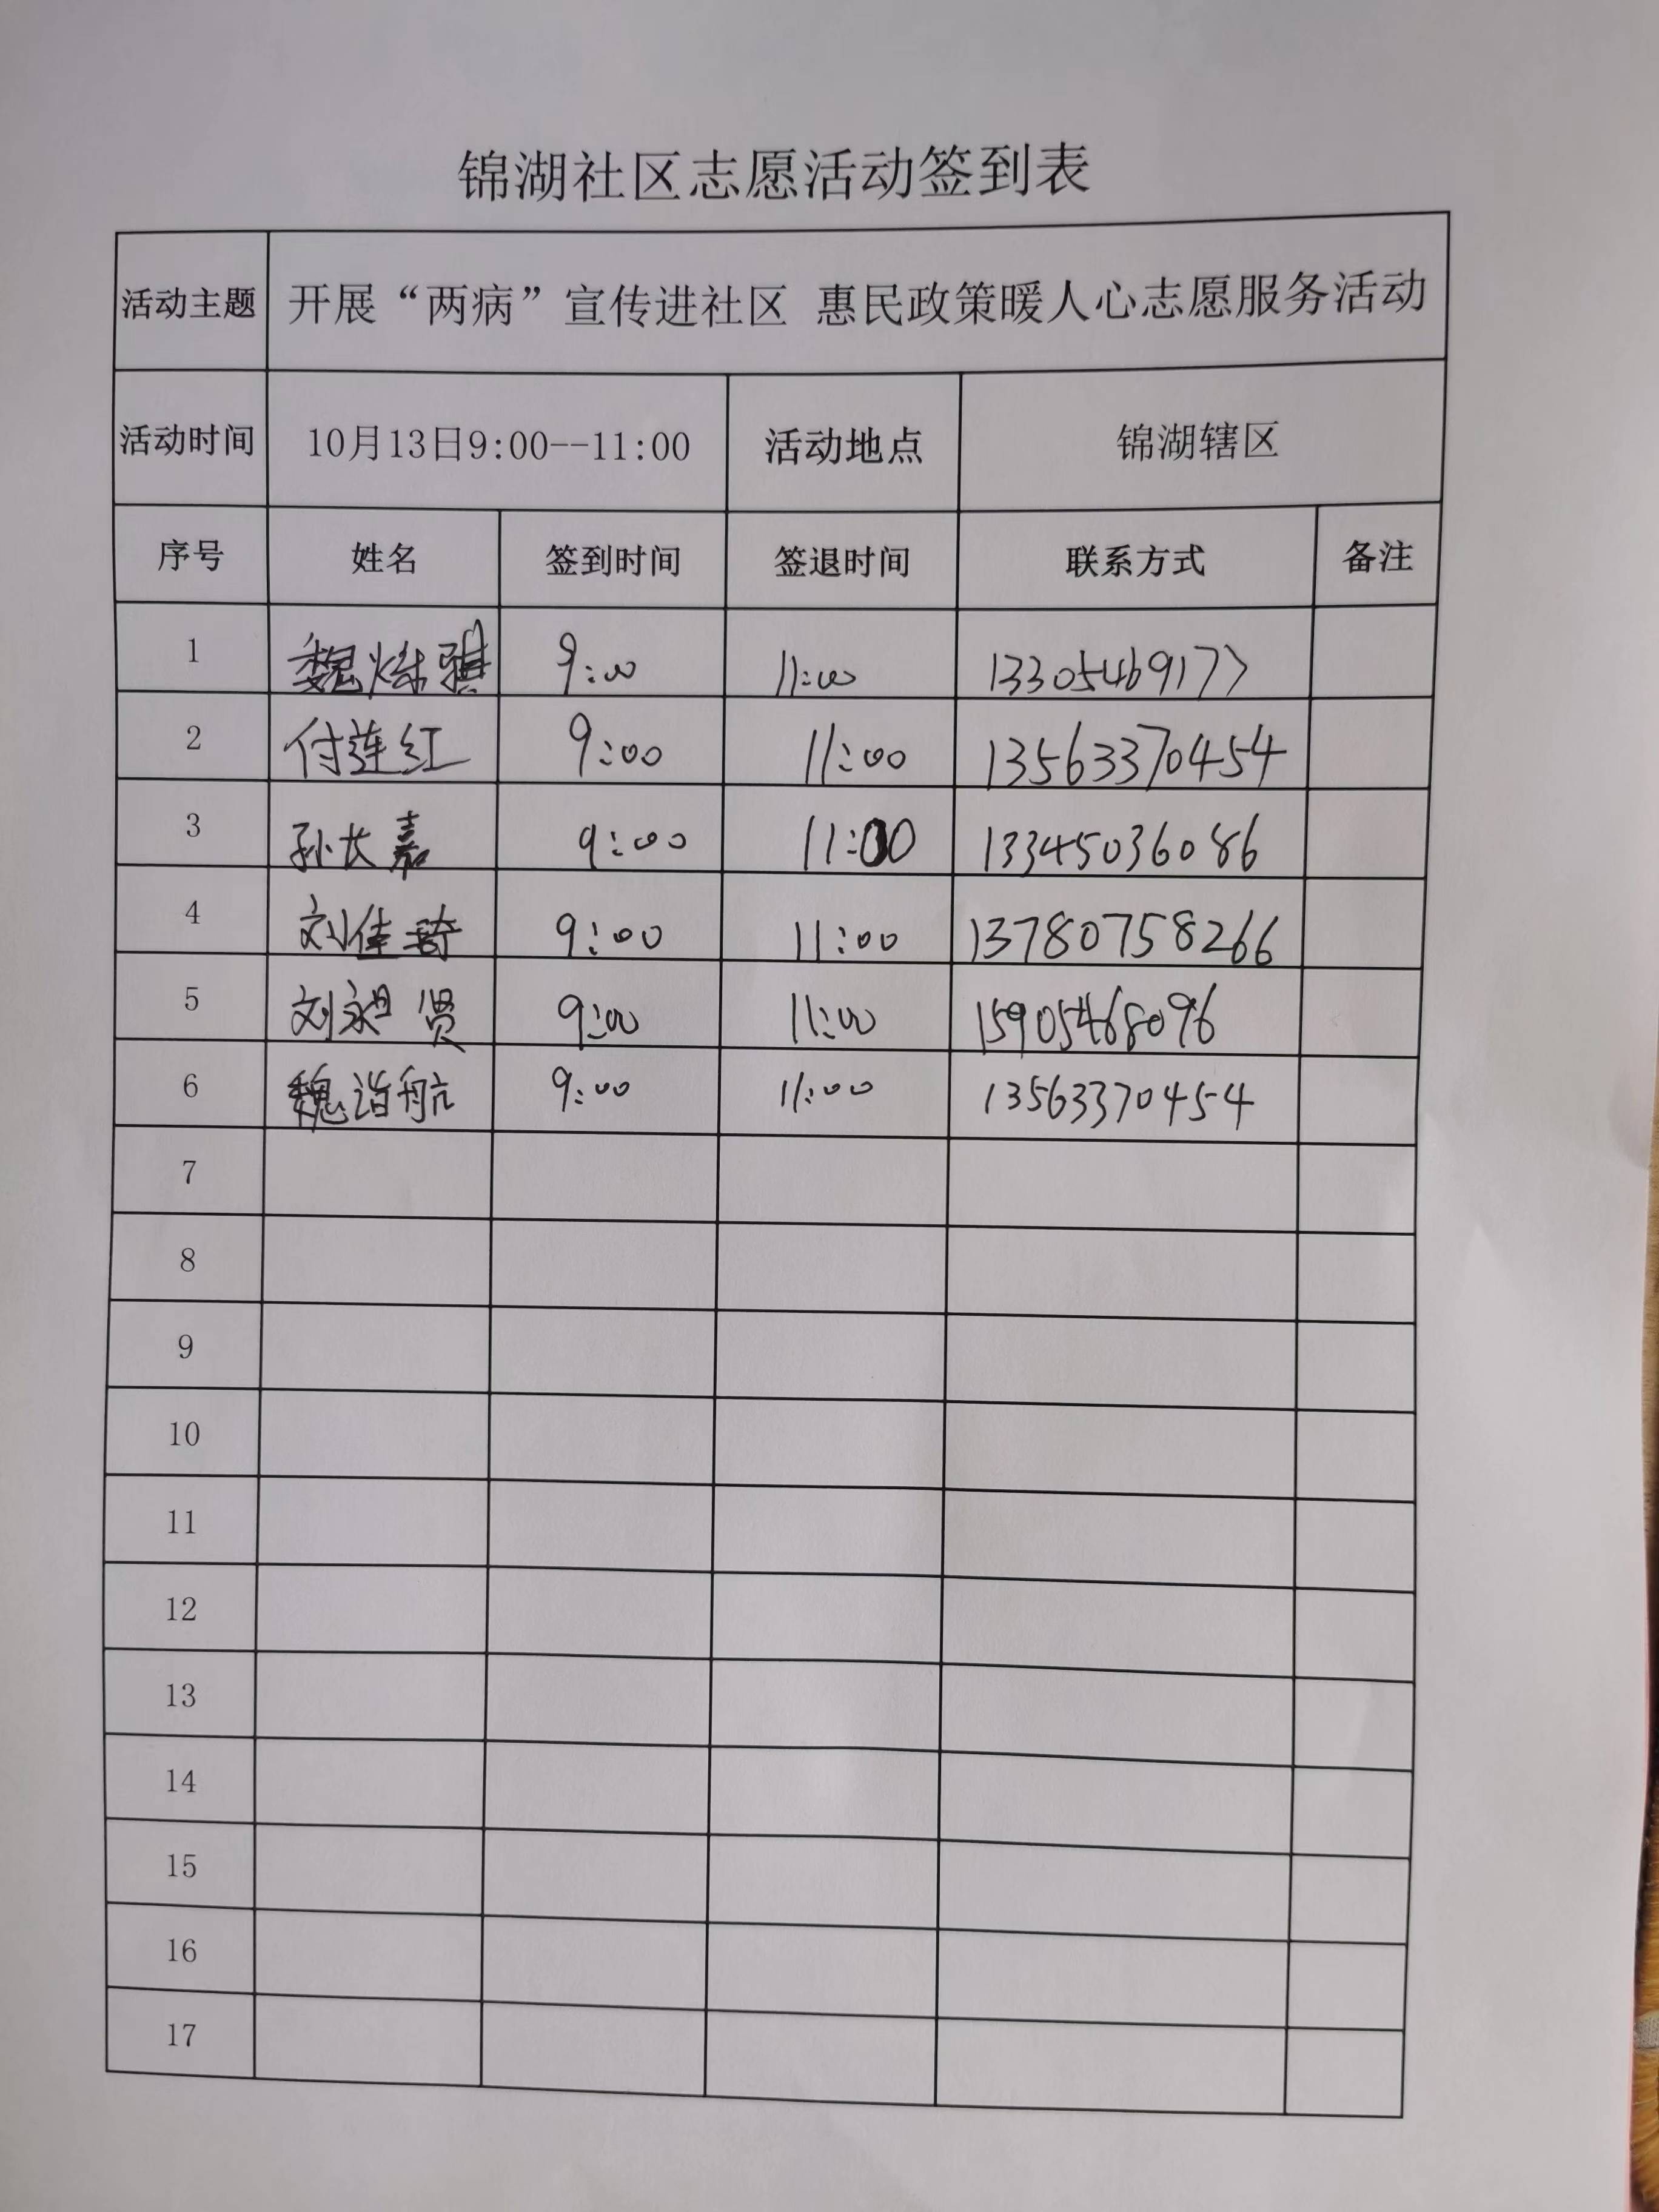 锦湖社区志愿活动签到表
活动主题 开展“两病”宣传进社区 惠民政策暖人心志愿服务活动
活动时间 10月13日9:00--11:00 活动地点 锦湖辖区
序号 姓名 签到时间 签退时间 联系方式 备注
1 魏 骐 9:00 11:00 13305469177
2 付连红 9:00 11:00 13563370454
3 孙长嘉 9:00 11:00 13345036086
4 刘佳琦 9:00 11:00 13780758266
5 刘昶贤 9:00 11:00 15905468096
6 魏诣航 9:00 11:00 13563370454
7
8
9
10
11
12
13
14
15
16
17